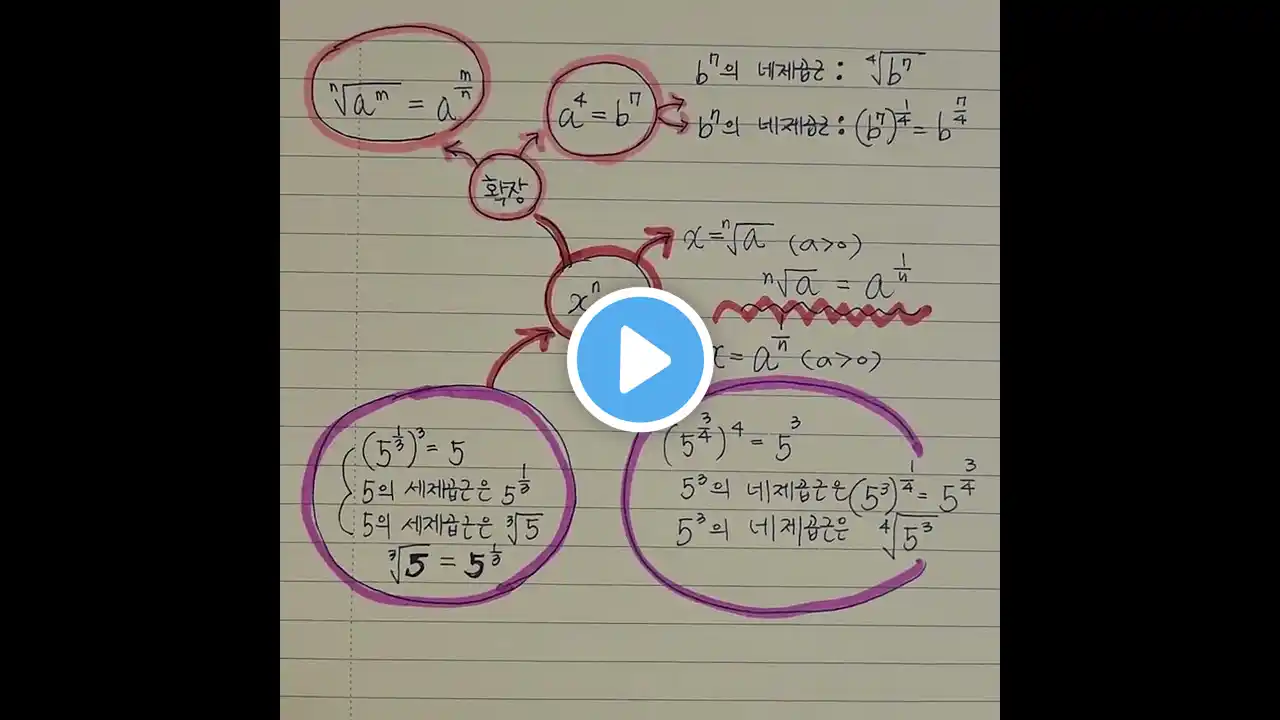 ⁿ√aᵐ = a^(m/n)
a⁴ = b⁷
b⁷의 네제곱근 : ⁴√b⁷
b⁷의 네제곱근 : (b⁷)^(1/4) = b^(7/4)
확장
xⁿ
x = ⁿ√a (a>0)
ⁿ√a = a^(1/n)
x = a^(1/n) (a>0)
(5^(1/3))³ = 5
5의 세제곱근은 5^(1/3)
5의 세제곱근은 ³√5
³√5 = 5^(1/3)
(5^(3/4))⁴ = 5³
5³의 네제곱근은 (5³)^(1/4) = 5^(3/4)
5³의 네제곱근은 ⁴√5³